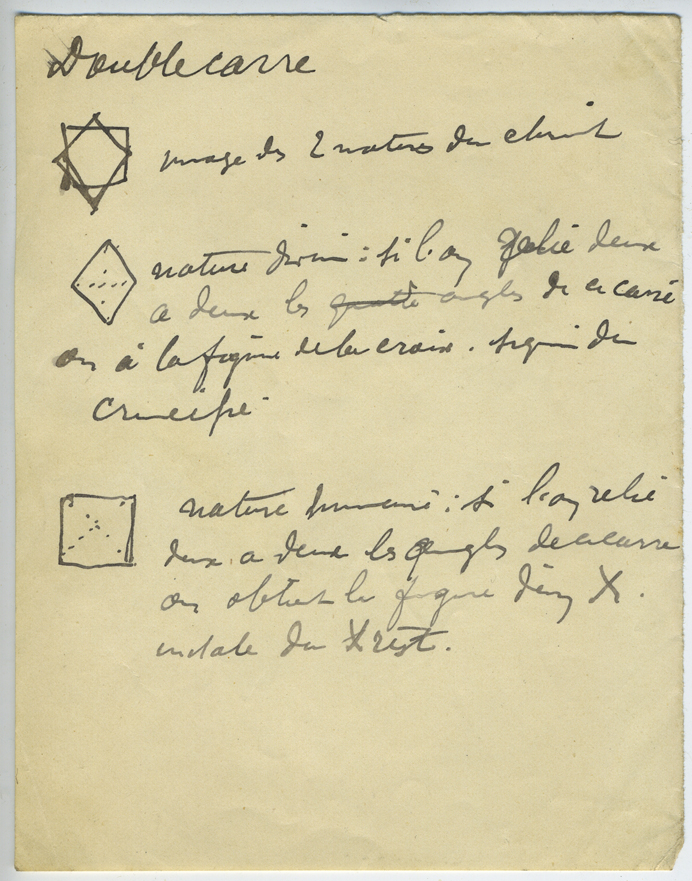 Double carre
image des 2 natures du christ
nature divin : si l'on relie deux
a deux les quatre angles de ce carré
on à la figure de la croix. signe du
crucifié
nature humaine : si l'on relie
deux a deux les angles de ce carre
on obtient la figure d'un X.
initiale du Xrist.